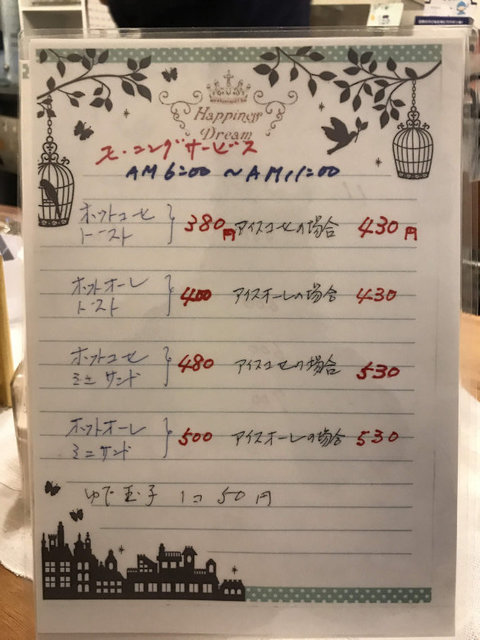 Happiness
Dream
モーニングサービス
AM6:00 ～AM11:00
ホットコーヒー
トースト
380円 アイスコーヒーの場合 430円
ホットオーレ
トースト
400 アイスオーレの場合 430
ホットコーヒー
ミニサンド
480 アイスコーヒーの場合 530
ホットオーレ
ミニサンド
500 アイスオーレの場合 530
ゆで玉子 1コ 50円